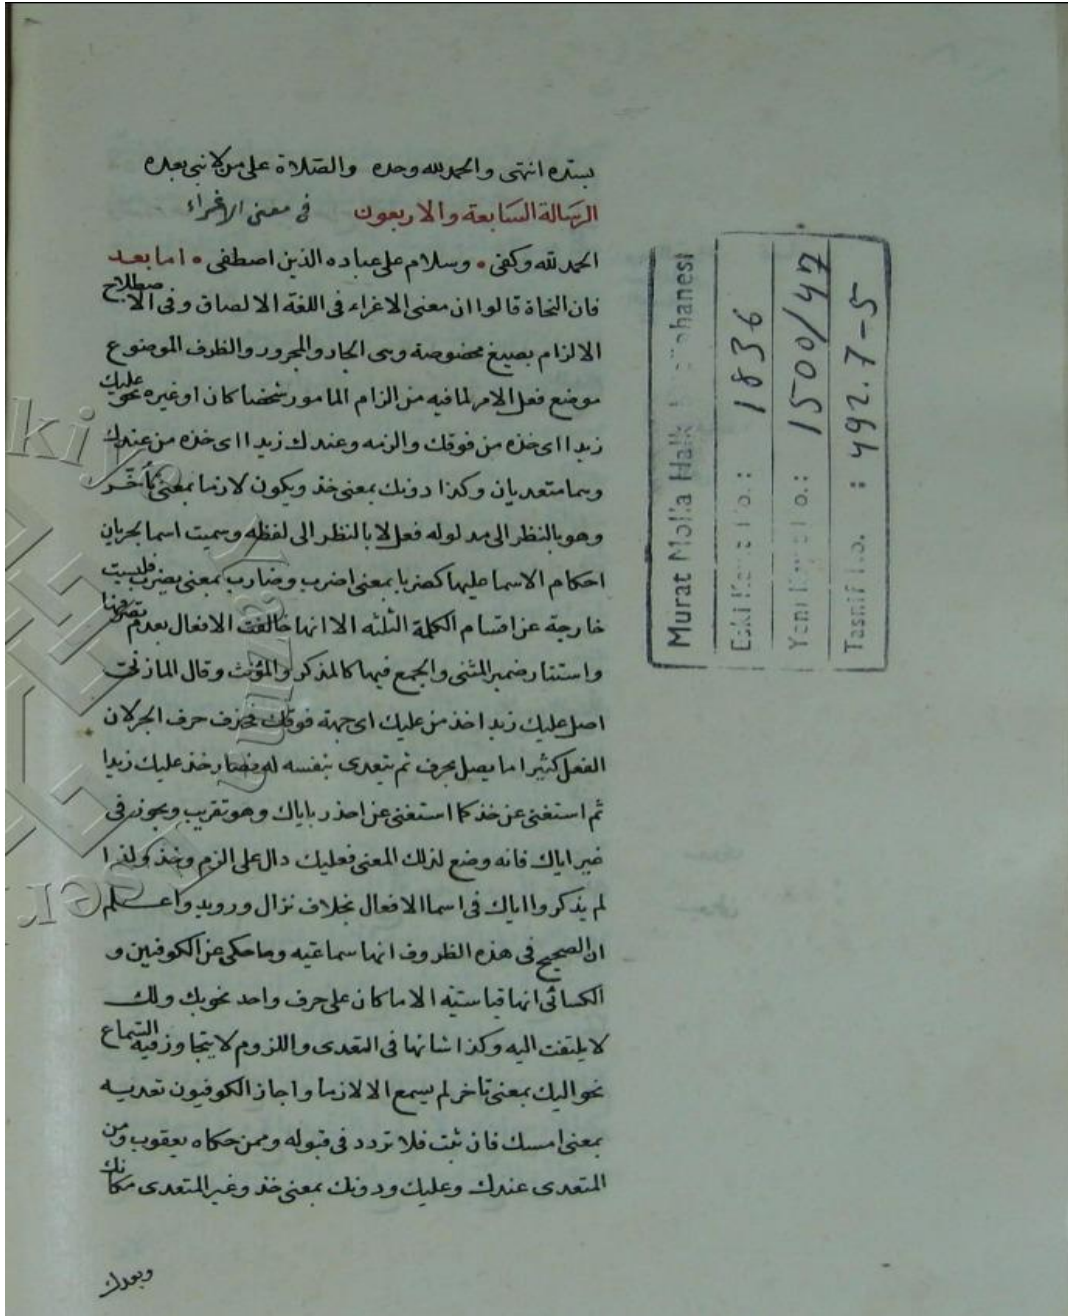 بستره انتهى والحمد لله وحده والصلاة على من لا نبى بعده
الرسالة السابعة والاربعون فى معنى الاغراء
الحمد لله وكفى • وسلام على عباده الذين اصطفى • اما بعد
فان النحاة قالوا ان معنى الاغراء فى اللغة الالصاق وفى الاصطلاح
الالزام بصيغ مخصوصة وهى الجار والمجرور والظرف الموضوع
موضع فعل الامر لما فيه من الزام المامور شخصا كان او غيره نحو عليك
زيدا اى خذه من فوقك والزمه وعندك زيدا اى خذه من عندك
وهما متعديان وكذا دونك بمعنى خذ ويكون لازما بمعنى تأخّر
وهو بالنظر الى مدلوله فعل لا بالنظر الى لفظه وسميت اسما لجريان
احكام الاسما عليها كضربا بمعنى اضرب وضارب بمعنى يضرب فليست
خارجة عن اقسام الكلمة الثلثه الا انها خالفت الافعال بعدم تصرفها
واستتار ضمير المثنى والجمع فيها كالمذكر والمؤنث وقال المازنى
اصل عليك زيدا خذ من عليك اى جهة فوقك فحذف حرف الجر لان
الفعل كثيرا ما يصل بحرف ثم يتعدى بنفسه له فصار خذ عليك زيدا
ثم استغنى عن خذ كما استغنى عن احذر باياك وهو تقريب ويجوز فى
غير اياك فانه وضع لذلك المعنى فعليك دال على الزم وخذ ولذا
لم يذكروا اياك فى اسما الافعال بخلاف نزال ورويد واعلم
ان الصحيح فى هذه الظروف انها سماعيه وما حكى عن الكوفيين و
الكسائى انها قياسيّة الا ما كان على حرف واحد نحو بك ولك
لا يلتفت اليه وكذا شانها فى التعدى واللزوم لا يتجاوز فيه السماع
نحو اليك بمعنى تاخر لم يسمع الا لازما واجاز الكوفيون تعديه
بمعنى امسك فان ثبت فلا تردد فى قبوله وممن حكاه يعقوب ومن
المتعدى عندك وعليك ودونك بمعنى خذ وغير المتعدى مكانك
وبعدك
Murat Molla Halk
Eski : 1836
Yeni : 1500/47
Tasnif No. : 492.7-5